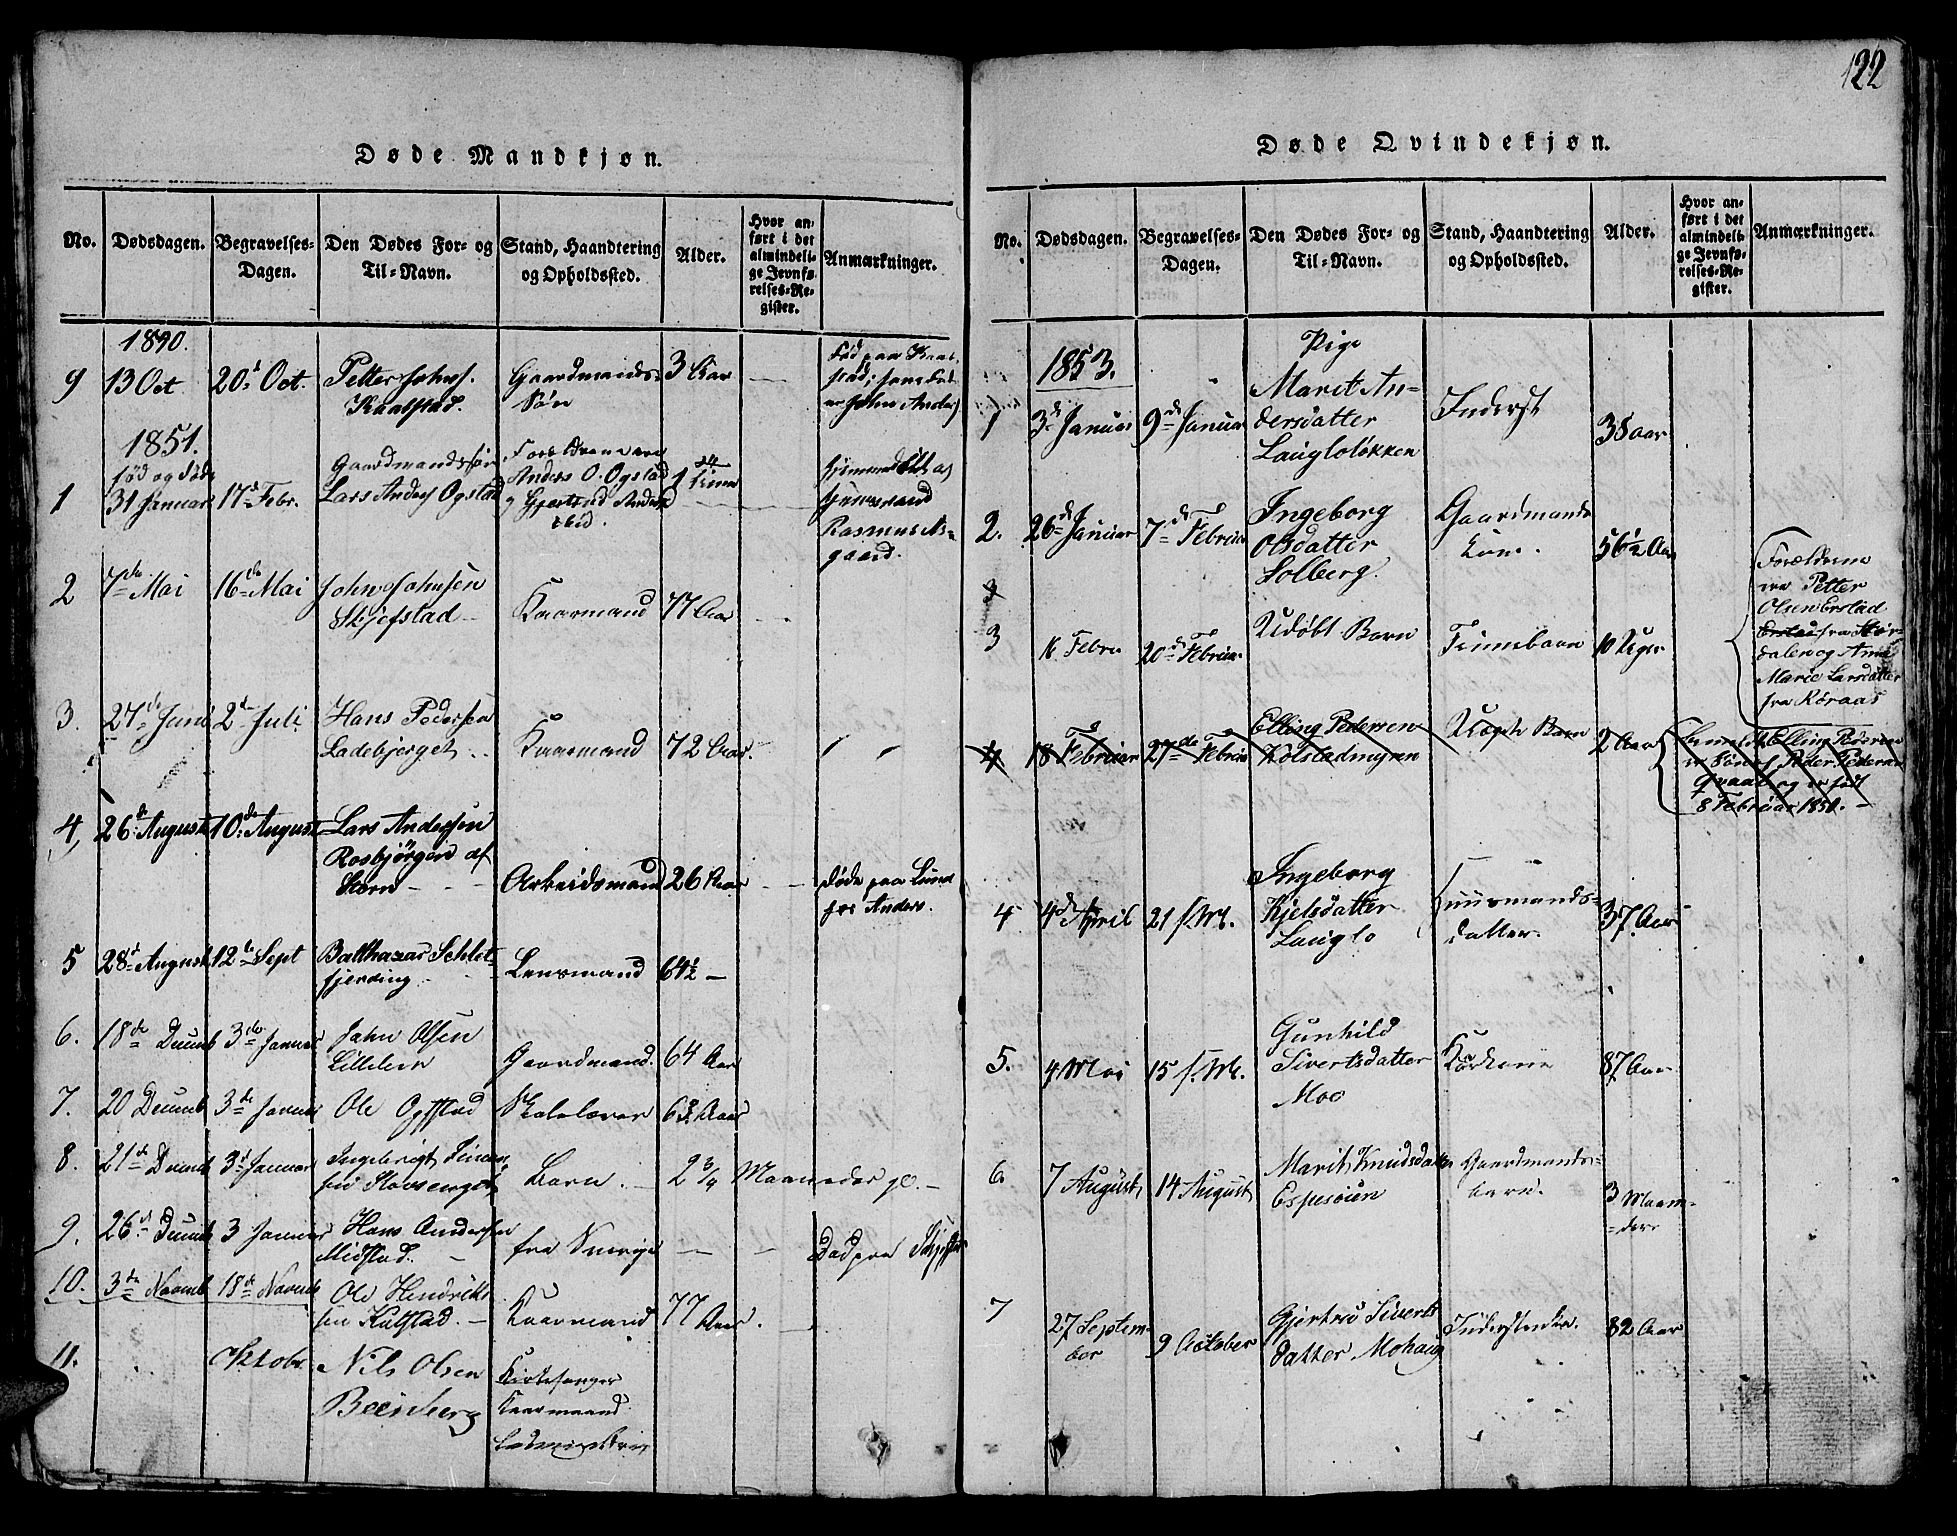 122
Døde Mandkjøn.
No. Dødsdagen. Begravelses-Dagen. Den Dødes For- og Til-Navn. Stand, Haandtering og Opholdssted. Alder. Hvor anført i det almindelige Jevnførelses-Register. Anmærkninger.
1890.
9 13 Oct 20d Oct. Petter Johns. Kaalstad. Gaardmands Søn 3 Aar
1851.
1 født og døde 31 Januar 17d Febr. Gaardmandssøn Lars Anders Ogstad Forældrene ere Anders O. Ogstad og Gjertrud Anders hjemmedøbt af
Rasmus
gaard.
2 7de Mai 16de Mai John Johnsen Skjefstad Kaarmand 77 Aar
3. 27de Juni 2de Juli Hans Pedersen Ladebjerget Kaarmand 72 Aar.
4, 26de August 10de August Lars Andersen Rosbjørgen af Størn Arbeidsmand 26 Aar døde paa Lund
for Anders.
5 28d August 12te Sept Balthazar Schlitfjerding Lensmand 64½ —
6. 18de Decemb 3die Januar John Olsen Gaardmand. 64 Aar
7. 20 Decemb 3de Januar Ole Opstad Skolelærer Aar
8. 21de Decemb 3d Januar Ingebrigt Barn 2¾ Maaneder gl.
9. 26d Decemb 3 Januar Hans Andersen Midstad. fra Sverige Død paa
10. 3de Novemb 18de Novemb Ole Hendriksen Kulstad. Kaarmand 77 Aar.
11. Oktobr Nils Olsen Beinberg Kirkesanger Kaarmand
Døde Qvindekjøn.
No. Dødsdagen. Begravelses-Dagen. Den Dødes For- og Til-Navn. Stand, Haandtering og Opholdssted. Alder. Hvor anført i det almindelige Jevnførelses-Register. Anmærkninger.
1853.
1 3d Januar 9de Januar Pige Marit Andersdatter Laugloløkken Inderst 38 aar
2. 26d Januar 7de Februar Ingeborg Olsdatter Solberg. Gaardmands Kone. 56½ Aar
3
3 16 Febru 20de Februar Udøbt Barn Finnebarn 10 Uger Forældrene
ere Petter
Olsen Erstad
Erstad fra Stør-
dalen og Anne
Marie Larsdatter
fra Røraas
4 18 Februar 27de Februar Elling Pedersen Kolstadmyren Barn 2 Aar Elling Pedersen
er Søn af Peder Pedersen
og er født
8 Februar 1850.
4 4de April 21 s. M. Ingeborg Kjelsdatter Lauglo Huusmands-datter. 37 Aar
5. 4 Mai 15 s. M. Gunhild Sivertsdatter Moo Kaarkone 87 Aar
6. 7 August 14 August Marit Knudsdatter Espesøien Gaardmands-barn. 3 Maaneder
7 27 September 9 October Gjertrud Siverts datter Mohaug 82 Aar